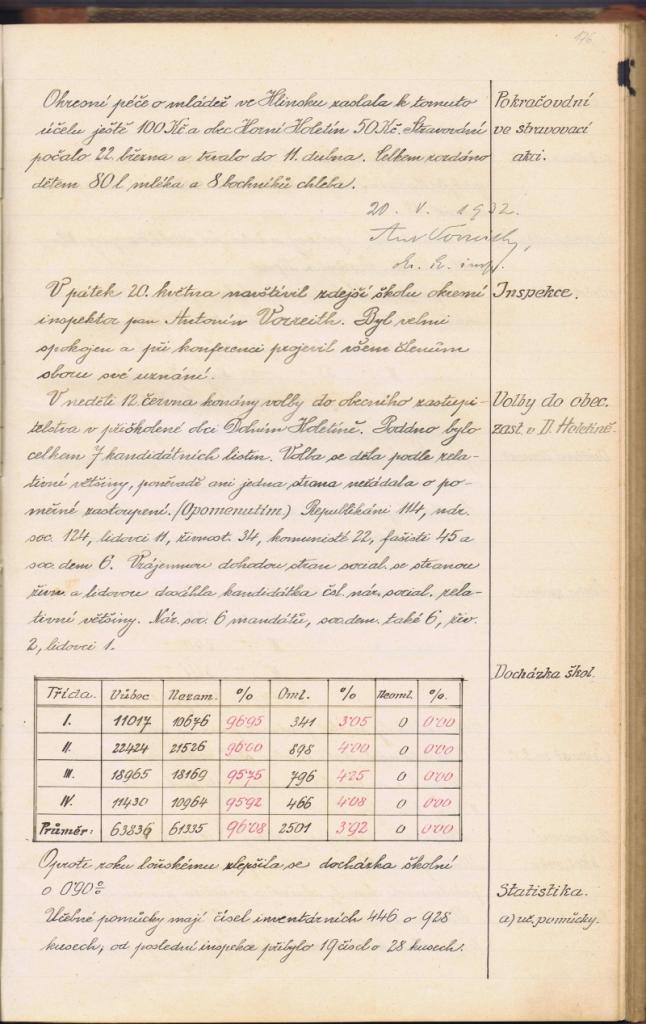 176
Okresní péče o mládež ve Hlinsku zaslala k tomuto
účelu ještě 100 Kč a obec Horní Holetín 50 Kč. Stravování
počalo 22. března a trvalo do 11. dubna. Celkem rozdáno
dětem 80 l mléka a 8 bochníků chleba.
Pokračování
ve stravovací
akci.
20. V. 1932.
Ant Vorreith,
ok. š. insp.
V pátek 20. května navštívil zdejší školu okresní
inspektor pan Antonín Vorreith. Byl velmi
spokojen a při konferenci projevil všem členům
sboru své uznání.
Inspekce.
V neděli 12. června konány volby do obecního zastupi-
telstva v přiškolené obci Dolním Holetíně. Podáno bylo
celkem 7 kandidátních listin. Volba se děla podle rela-
tivní většiny, poněvadž ani jedna strana nežádala o po-
měrné zastoupení. (Opomenutím) Republikáni 114, nár.
soc. 124, lidovci 11, živnost. 34, komunisté 22, fašisti 45 a
soc. dem 6. Vzájemnou dohodou stran social. se stranou
živn. a lidovou dosáhla kandidátka čsl. nár. social. rela-
tivní většiny. Nár. soc. 6 mandátů, soc. dem. také 6, živ.
2, lidovci 1.
Volby do obec.
zast. v D. Holetíně.
Docházka škol.
Třída. Vůbec Nezam. % Oml. % Neoml. %.
I. 11017 10676 96·95 341 3·05 0 0·00
II. 22424 21526 96·00 898 4·00 0 0·00
III. 18965 18169 95·75 796 4·25 0 0·00
IV. 11430 10964 95·92 466 4·08 0 0·00
Průměr: 63836 61335 96·08 2501 3·92 0 0·00
Oproti roku loňskému zlepšila se docházka školní
o 0·90 %
Učebné pomůcky mají čísel inventárních 446 o 928
kusech; od poslední inspekce přibylo 19 čísel o 28 kusech.
Statistika.
a) uč. pomůcky.